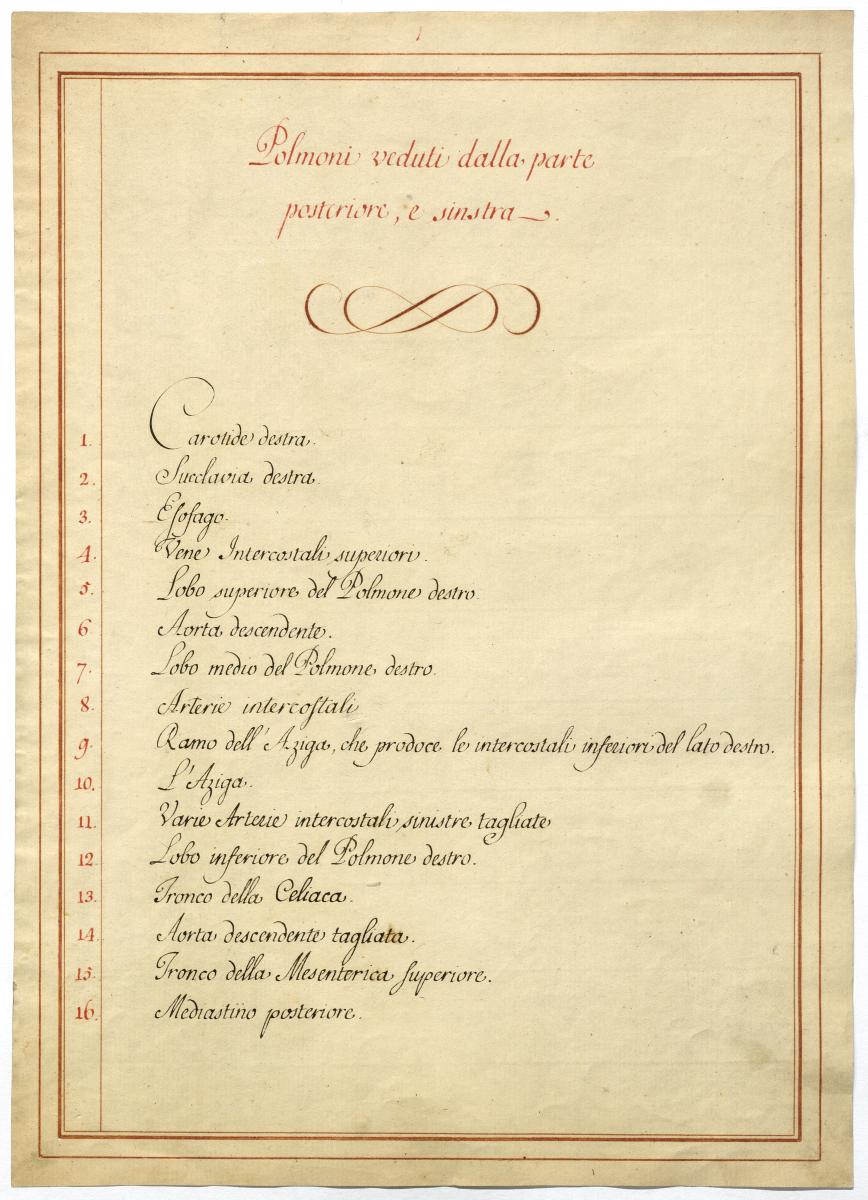 Polmoni veduti dalla parte
posteriore, e sinstra.
1. Carotide destra.
2. Succlavia destra.
3. Esofago.
4. Vene Intercostali superiori.
5. Lobo superiore del Polmone destro.
6 Aorta descendente.
7. Lobo medio del Polmone destro.
8. Arterie intercostali
9. Ramo dell'Aziga, che prodoce le intercostali inferiori del lato destro.
10. L'Aziga.
11. Varie Arterie intercostali sinistre tagliate
12. Lobo inferiore del Polmone destro.
13. Tronco della Celiaca.
14. Aorta descendente tagliata.
15. Tronco della Mesenterica superiore.
16. Mediastino posteriore.